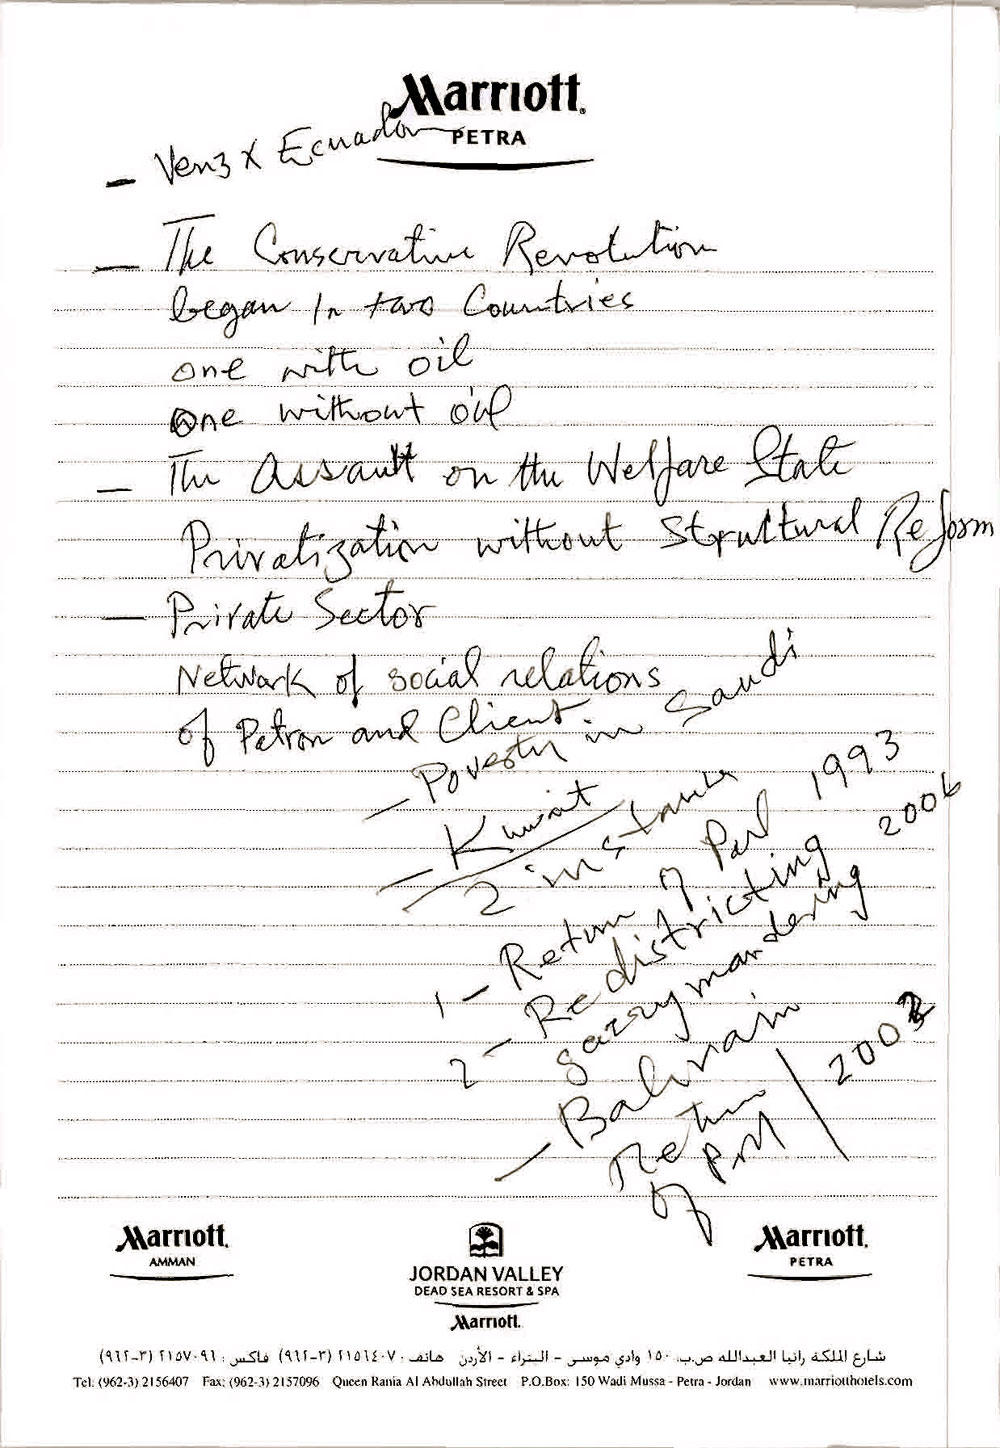 Marriott
PETRA
— Venz x Ecuador
— The Conservative Revolution
began In two Countries
one with oil
One without oil
— The Assault on the Welfare State
Privatization without Structural Reform
— Private Sector
Network of social relations
of Patron and Client
— Poverty in Saudi
— Kuwait
2 instance
1 — Return of Parl 1993
2 — Redistricting 2006
gerrymandering
— Bahrain
Return / 2002
of
Marriott
AMMAN
JORDAN VALLEY
DEAD SEA RESORT & SPA
Marriott
Marriott
PETRA
شارع الملكة رانيا العبدالله ص.ب. ١٥٠ وادي موسى - البتراء - الأردن هاتف: ٢١٥٦٤٠٧ (٣-٩٦٢) فاكس: ٢١٥٧٠٩٦ (٣-٩٦٢)
Tel: (962-3) 2156407 Fax: (962-3) 2157096 Queen Rania Al Abdullah Street P.O.Box: 150 Wadi Mussa - Petra - Jordan www.marriotthotels.com